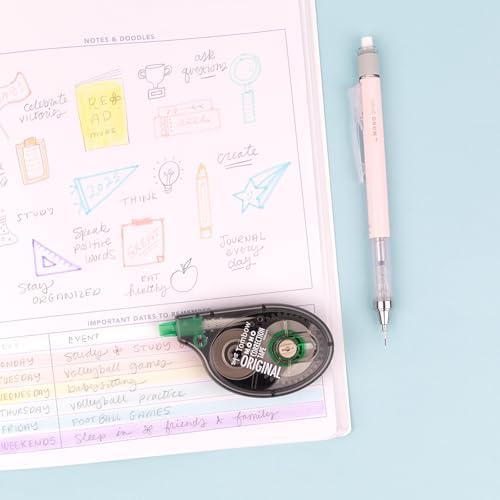 NOTES & DOODLES
ask
questions
celebrate
victories
READ
MORE
create
2025
STUDY
THINK
speak
positive
words
GREAT
JOURNAL
every
day
Stay
ORGANIZED
EAT
healthy
IMPORTANT DATES TO REMEMBER
EVENT
MONDAY
Study & STUDY
TUESDAY
volleyball games
WEDNESDAY
babysitting
THURSDAY
volleyball practice
FRIDAY
FOOTBALL GAMES
WEEKENDS
Sleep in & friends & family
Tombow
MONO
CORRECTION
TAPE
ORIGINAL
MONO